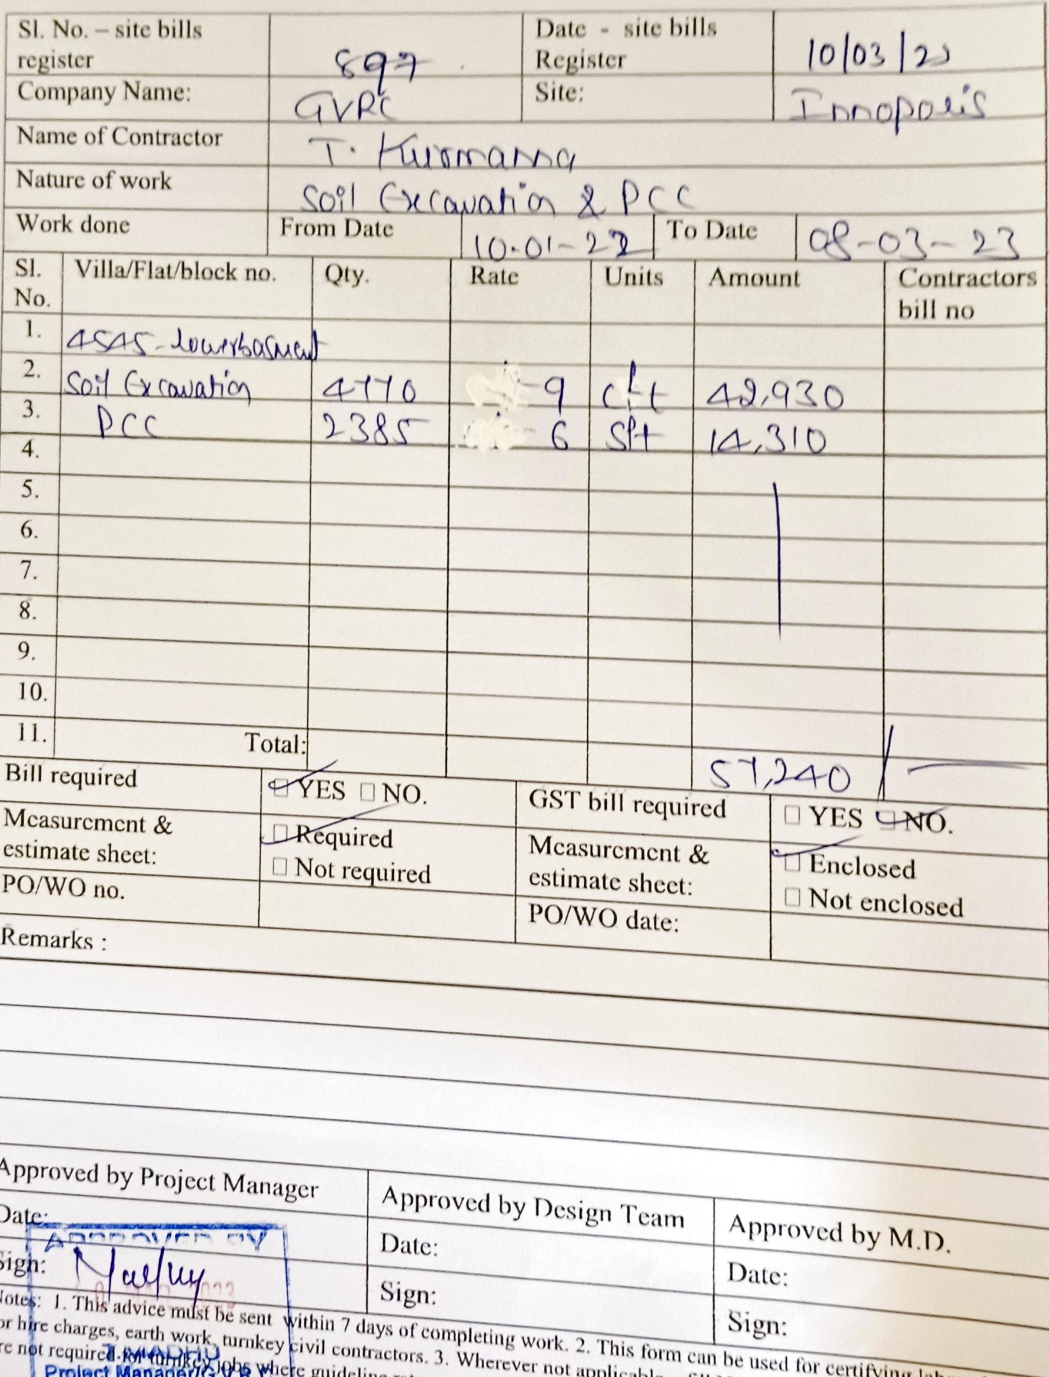 Sl. No. – site bills register 897 Date - site bills Register 10/03/23
Company Name: GVRC Site: Innopolis
Name of Contractor T. Kurmanna
Nature of work Soil Excavation & PCC
Work done From Date 10-01-22 To Date 08-03-23
Sl. No. Villa/Flat/block no. Qty. Rate Units Amount Contractors bill no
1. 4545-lowerbasment
2. Soil Excavation 4770 9 cft 42,930
3. PCC 2385 6 Sft 14,310
4.
5.
6.
7.
8.
9.
10.
11. Total: 57,240
Bill required ☑ YES ☐ NO. GST bill required ☐ YES ☑ NO.
Measurement & estimate sheet: ☑ Required ☐ Not required Measurement & estimate sheet: ☑ Enclosed ☐ Not enclosed
PO/WO no. PO/WO date:
Remarks :
Approved by Project Manager Approved by Design Team Approved by M.D.
Date: Date: Date:
APPROVED BY
Sign: Sign: Sign:
Notes: 1. This advice must be sent within 7 days of completing work. 2. This form can be used for certifying
or hire charges, earth work, turnkey civil contractors. 3. Wherever not
re not required for turnkey jobs where
MADHU
Project Manager